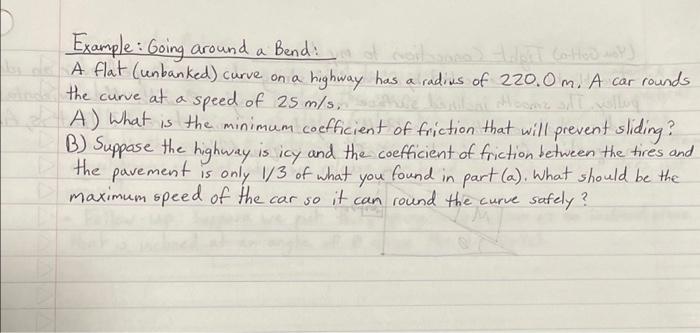 Example: Going around a Bend:
A flat (unbanked) curve on a highway has a radius of 220.0 m. A car rounds
the curve at a speed of 25 m/s.
A) What is the minimum coefficient of friction that will prevent sliding?
B) Suppose the highway is icy and the coefficient of friction between the tires and
the pavement is only 1/3 of what you found in part (a). What should be the
maximum speed of the car so it can round the curve safely?